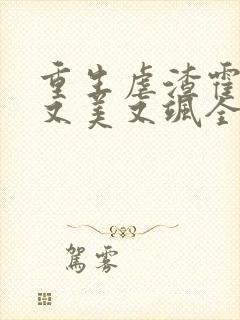 重生虐渣霍
又美又飒全
驾雾